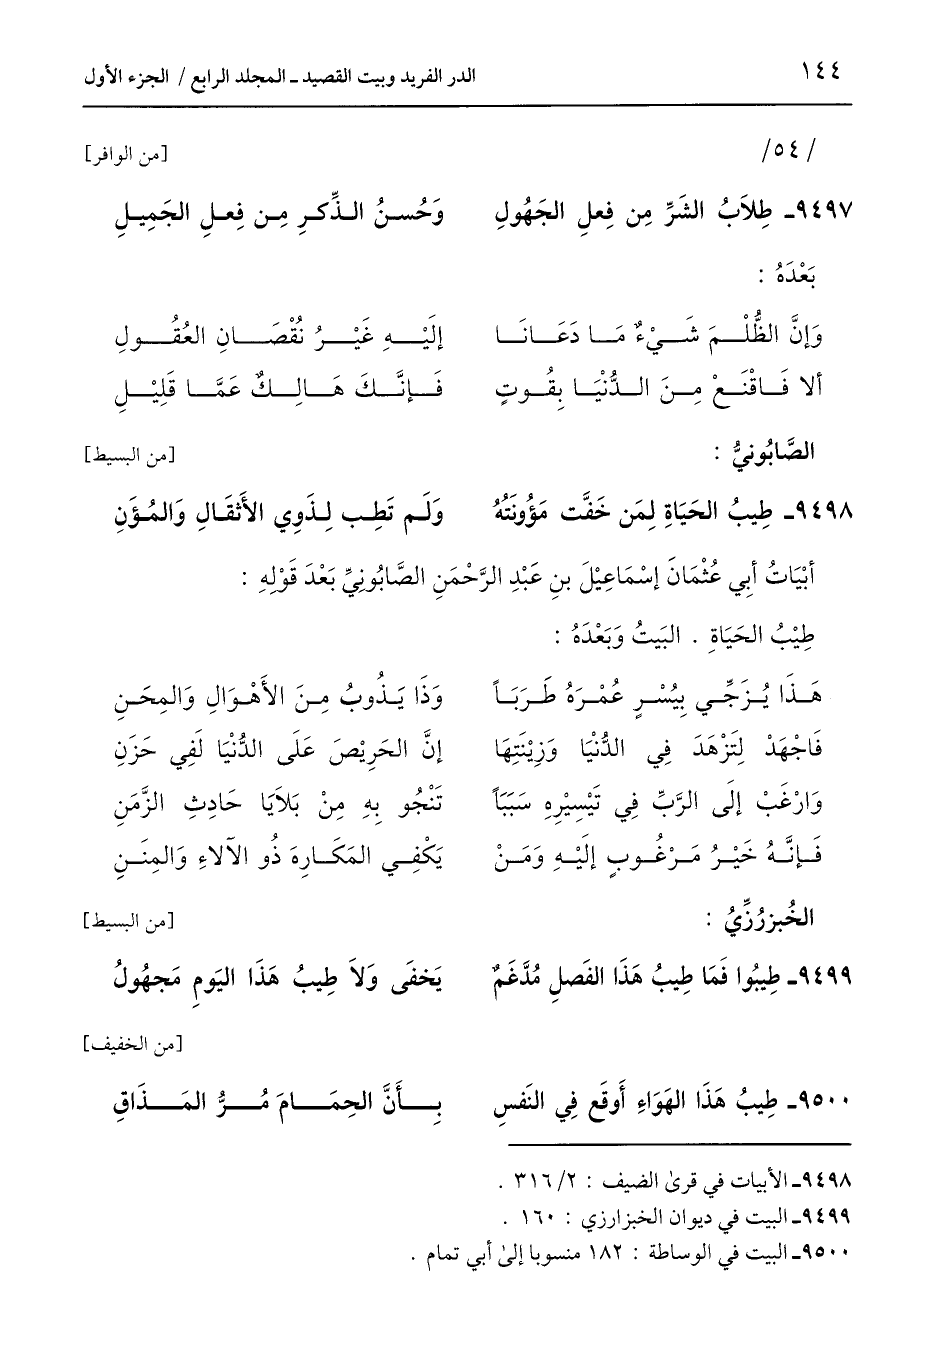 ١٤٤ الدر الفريد وبيت القصيد ـ المجلد الرابع / الجزء الأول
/٥٤/ [من الوافر]
٩٤٩٧ـ طِلاَبُ الشَرِّ مِن فِعلِ الجَهُولِ وَحُسنُ الذِّكرِ مِن فِعلِ الجَمِيلِ
بَعْدَهُ :
وَإنَّ الظُّلْمَ شَيْءٌ مَا دَعَانَا إلَيْهِ غَيْرُ نُقْصَانِ العُقُولِ
ألا فَاقْنَعْ مِنَ الدُّنْيَا بِقُوتٍ فَإنَّكَ هَالِكٌ عَمَّا قَلِيْلِ
الصَّابُونيُّ : [من البسيط]
٩٤٩٨ـ طِيبُ الحَيَاةِ لِمَن خَفَّت مَؤُونَتُهُ وَلَم تَطِب لِذَوِي الأَثقَالِ وَالمُؤَنِ
أبْيَاتُ أبي عُثْمَانَ إسْمَاعِيْلَ بنِ عَبْدِ الرَّحْمَنِ الصَّابُونِيِّ بَعْدَ قَوْلِهِ :
طِيْبُ الحَيَاةِ . البَيتُ وَبَعْدَهُ :
هَذَا يُزَجِّي بِيُسْرٍ عُمْرَهُ طَرَبَاً وَذَا يَذُوبُ مِنَ الأَهْوَالِ وَالمِحَنِ
فَاجْهَدْ لِتَزْهَدَ فِي الدُّنْيَا وَزِيْنَتِهَا إنَّ الحَرِيْصَ عَلَى الدُّنْيَا لَفِي حَزَنِ
وَارْغَبْ إلَى الرَّبِّ فِي تَيْسِيْرِهِ سَبَبَاً تَنْجُو بِهِ مِنْ بَلاَيَا حَادِثِ الزَّمَنِ
فَإنَّهُ خَيْرُ مَرْغُوبٍ إلَيْهِ وَمَنْ يَكْفِي المَكَارِهَ ذُو الآلاءِ وَالمِنَنِ
الخُبزرُزِّيُ : [من البسيط]
٩٤٩٩ـ طِيبُوا فَمَا طِيبُ هَذَا الفَصلِ مُدَّغَمٌ يَخفَى وَلاَ طِيبُ هَذَا اليَومِ مَجهُولُ
[من الخفيف]
٩٥٠٠ـ طِيبُ هَذَا الهَوَاءِ أَوقَع فِي النَفسِ بِأَنَّ الحِمَامَ مُرُّ المَذَاقِ
٩٤٩٨ـ الأبيات في قرىٰ الضيف : ٢/ ٣١٦ .
٩٤٩٩ـ البيت في ديوان الخبزارزي : ١٦٠ .
٩٥٠٠ـ البيت في الوساطة : ١٨٢ منسوبا إلىٰ أبي تمام .